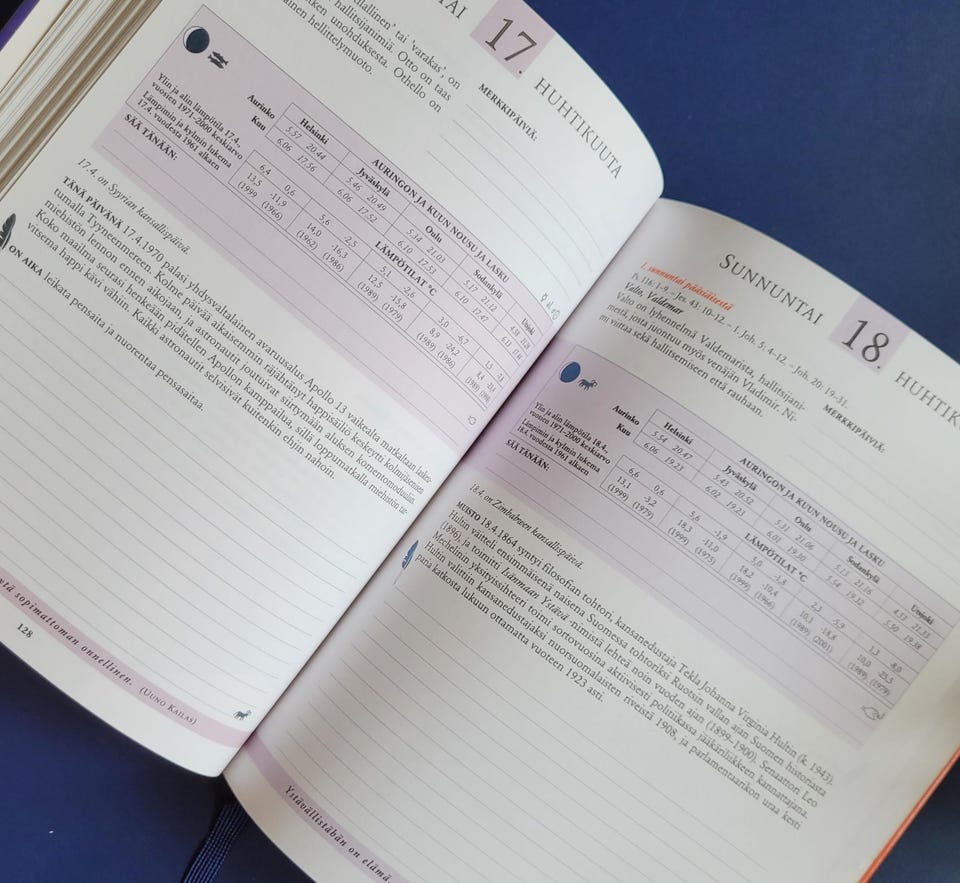 TAI
17.
HUHTIKUUTA
ullallinen' tai 'varakas', on
hallitsijanimiä. Otto on taas
unohduksesta. Othello on
hellittelymuoto.
MERKKIPÄIVIÄ:
AURINGON JA KUUN NOUSU JA LASKU
Helsinki Jyväskylä Oulu Sodankylä Utsjoki
Aurinko 5.57 20.44 5.46 20.49 5.34 21.03
Kuu 6.06 17.56 6.06 17.52 6.10 17.53 6.10 17.47
LÄMPÖTILAT °C
Ylin ja alin lämpötila 17.4.,
vuosien 1971–2000 keskiarvo 6,4 0,6 5,6 -2,5 5,1 -2,6 3,0 -6,7
Lämpimin ja kylmin lukema 13,5 -11,9 14,0 -16,3 12,5 -15,8 8,9 -24,2
17.4. vuodesta 1961 alkaen (1999) (1966) (1962) (1986) (1989) (1979) (1989) (1986)
SÄÄ TÄNÄÄN:
17.4. on Syyrian kansallispäivä.
TÄNÄ PÄIVÄNÄ 17.4.1970 palasi yhdysvaltalainen avaruusalus Apollo 13 vaikealta matkaltaan laskeu-
tumalla Tyyneenmereen. Kolme päivää aikaisemmin räjähtänyt happisäiliö keskeytti kolmijäsenisen
miehistön lennon ennen aikojaan, ja astronautit joutuivat siirtymään aluksen komentomoduuliin.
Koko maailma seurasi henkeään pidätellen Apollon kamppailua, sillä loppumatkalla miehistön tar-
vitsema happi kävi vähiin. Kaikki astronautit selvisivät kuitenkin ehjin nahoin.
ON AIKA leikata pensaita ja nuorentaa pensasaitaa.
sopimattoman onnellinen. (UUNO KAILAS)
128
SUNNUNTAI
18.
HUHTIK
1. sunnuntai pääsiäisestä
Ps. 116: 1–9. – Jes. 43: 10–12. – 1. Joh. 5: 4–12. – Joh. 20: 19–31.
Valto, Valdemar
Valto on lyhennelmä Valdemarista, hallitsijani-
mestä, josta juontuu myös venäjän Vladimir. Ni-
mi viittaa sekä hallitsemiseen että rauhaan.
MERKKIPÄIVIÄ:
AURINGON JA KUUN NOUSU JA LASKU
Helsinki Jyväskylä Oulu Sodankylä Utsjoki
Aurinko 5.54 20.47 5.43 20.52 5.31 21.06 5.13 21.16 4.53 21.33
Kuu 6.06 19.23 6.02 19.23 6.01 19.30 5.54 19.32 5.50 19.38
LÄMPÖTILAT °C
Ylin ja alin lämpötila 18.4.,
vuosien 1971–2000 keskiarvo 6,6 0,6 5,6 -1,9 5,0 -1,8 2,3 -5,9 1,3 -8,0
Lämpimin ja kylmin lukema 13,1 -3,2 18,3 -11,0 18,2 -10,4 10,1 -18,8 10,0 -25,5
18.4. vuodesta 1961 alkaen (1999) (1979) (1999) (1975) (1999) (1966) (1989) (2001) (1989) (1979)
SÄÄ TÄNÄÄN:
18.4. on Zimbabwen kansallispäivä.
MUISTO 18.4.1864 syntyi filosofian tohtori, kansanedustaja Tekla Johanna Virginia Hultin (k. 1943).
Hultin väitteli ensimmäisenä naisena Suomessa tohtoriksi Ruotsin vallan ajan Suomen historiasta
(1896), ja toimitti Isänmaan Ystävä -nimistä lehteä noin vuoden ajan (1899–1900). Senaattori Leo
Mechelinin yksityissihteeri toimi sortovuosina aktiivisesti politiikassa jääkäriliikkeen kannattajana.
Hultin valittiin kansanedustajaksi nuorsuomalaisten riveistä 1908, ja parlamentaarikon uraa kesti
paria katkosta lukuun ottamatta vuoteen 1923 asti.
Ystävällistähän on elämä.